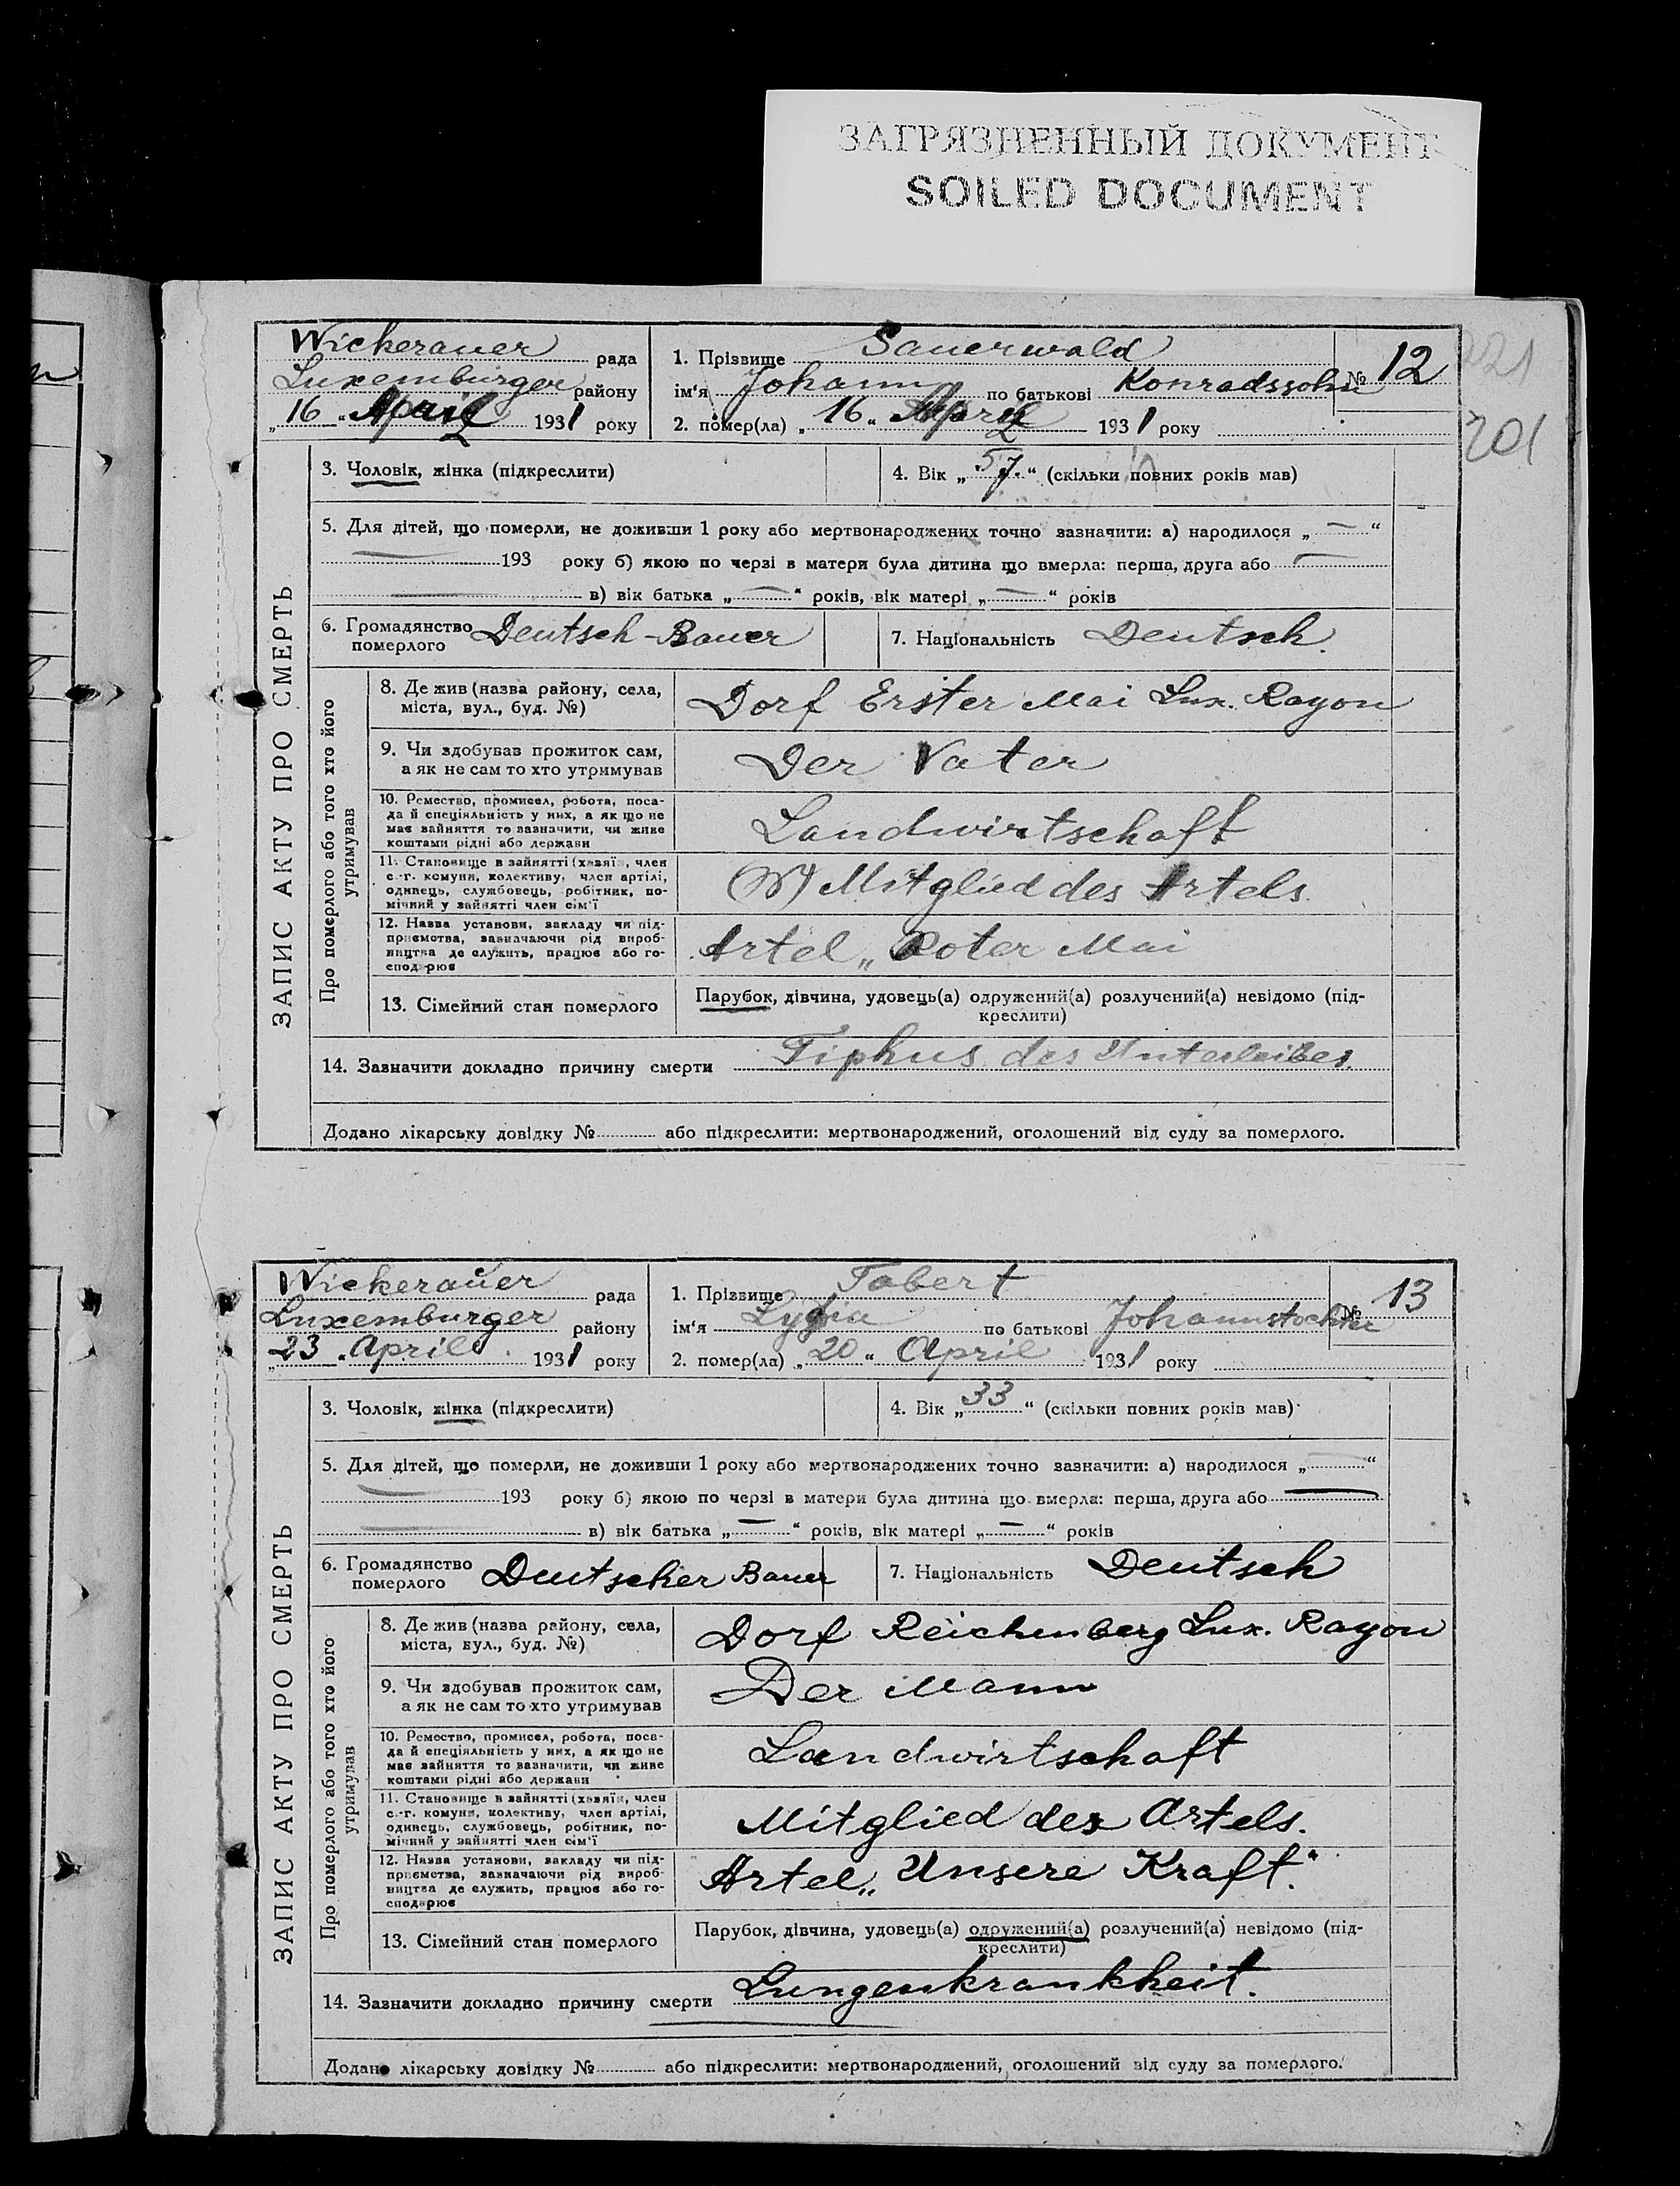 ЗАГРЯЗНЕННЫЙ ДОКУМЕНТ
SOILED DOCUMENT
221
201
ЗАПИС АКТУ ПРО СМЕРТЬ
Wickerauer рада
Luxemburger району
„16“ April 1931 року
1. Прізвище Sauerwald
ім‘я Johann по батькові Konradssohn
№ 12
2. помер(ла) „16“ April 1931 року
3. Чоловік, жінка (підкреслити)
4. Вік „57“ (скільки повних років мав)
5. Для дітей, що померли, не доживши 1 року або мертвонароджених точно зазначити: а) народилося „—“
— 193 року б) якою по черзі в матери була дитина що вмерла: перша, друга або —
— в) вік батька „—“ років, вік матері „—“ років
6. Громадянство померлого Deutsch-Bauer
7. Національність Deutsch.
Про померлого або того хто його утримував
8. Де жив (назва району, села,
міста, вул., буд. №)
Dorf Erster Mai Lux. Rayon
9. Чи здобував прожиток сам,
а як не сам то хто утримував
Der Vater
10. Ремество, промисел, робота, поса-
да й спеціяльність у них, а як що не
має зайняття то зазначити, чи живе
коштами рідні або держави
Landwirtschaft
11. Становище в зайнятті (хазяїн, член
с.-г. комуни, колективу, член артілі,
одинець, службовець, робітник, по-
мічний у зайнятті член сім‘ї
Mitglied des Artels.
12. Назва установи, закладу чи під-
приємства, зазначаючи рід вироб-
ництва де служить, працює або го-
сподарює
Artel „Roter Mai
13. Сімейний стан померлого
Парубок, дівчина, удовець(а) одружений(а) розлучений(а) невідомо (під-
креслити)
14. Зазначити докладно причину смерти Tiphus des Unterleibes.
Додано лікарську довідку № або підкреслити: мертвонароджений, оголошений від суду за померлого.
ЗАПИС АКТУ ПРО СМЕРТЬ
Wickerauer рада
Luxemburger району
„23“ April. 1931 року
1. Прізвище Tabert
ім‘я по батькові Johannstochter
№ 13
2. помер(ла) „20“ April 1931 року
3. Чоловік, жінка (підкреслити)
4. Вік „33“ (скільки повних років мав)
5. Для дітей, що померли, не доживши 1 року або мертвонароджених точно зазначити: а) народилося „—“
— 193 року б) якою по черзі в матери була дитина що вмерла: перша, друга або —
— в) вік батька „—“ років, вік матері „—“ років
6. Громадянство померлого Deutscher Bauer
7. Національність Deutsch
Про померлого або того хто його утримував
8. Де жив (назва району, села,
міста, вул., буд. №)
Dorf Reichenberg Lux. Rayon
9. Чи здобував прожиток сам,
а як не сам то хто утримував
Der Mann
10. Ремество, промисел, робота, поса-
да й спеціяльність у них, а як що не
має зайняття то зазначити, чи живе
коштами рідні або держави
Landwirtschaft
11. Становище в зайнятті (хазяїн, член
с.-г. комуни, колективу, член артілі,
одинець, службовець, робітник, по-
мічний у зайнятті член сім‘ї
Mitglied des Artels.
12. Назва установи, закладу чи під-
приємства, зазначаючи рід вироб-
ництва де служить, працює або го-
сподарює
Artel „Unsere Kraft.“
13. Сімейний стан померлого
Парубок, дівчина, удовець(а) одружений(а) розлучений(а) невідомо (під-
креслити)
14. Зазначити докладно причину смерти Lungenkrankheit.
Додано лікарську довідку № або підкреслити: мертвонароджений, оголошений від суду за померлого.